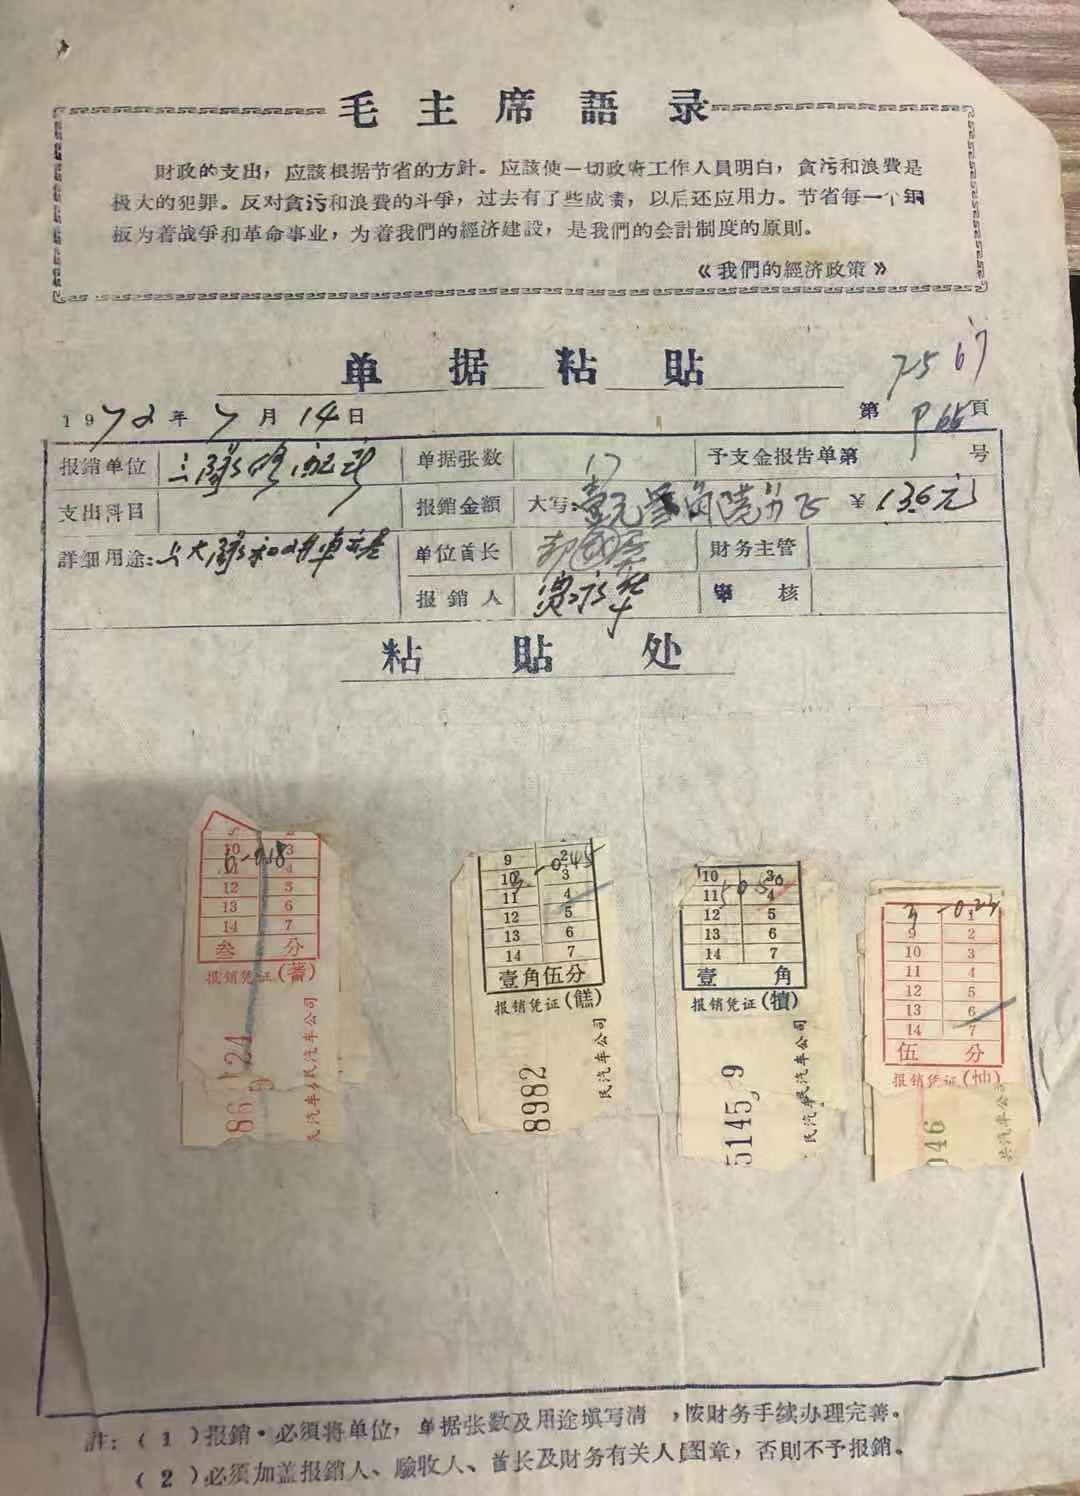 毛主席語录
財政的支出，应該根据节省的方針。应該使一切政府工作人員明白，貪污和浪費是
极大的犯罪。反对貪污和浪費的斗爭，过去有了些成绩，以后还应用力。节省每一个銅
板为着战爭和革命事业，为着我們的經济建設，是我們的会計制度的原則。
《我們的經济政策》
75 67
单据粘貼
1972年7月14日
第 P65 頁
报銷单位
单据张数 17
予支金报告单第 号
支出科目
报銷金額 大写：壹元 角 ¥ 1.36元
詳細用途：
单位首长
財务主管
报銷人
审核
粘貼处
10 3
6-0.18
11 4
12 5
13 6
14 7
叁分
报销凭证(蓄)
民汽车公司
86
24
9
9 2
10 3
3-0.45
11 4
12 5
13 6
14 7
壹角伍分
报销凭证(餻)
民汽车公司
8982
10 3
11 4
5 0.50
12 5
13 6
14 7
壹角
报销凭证(犢)
民汽车公司
5145
9
1
9 2
10 3
11 4
12 5
13 6
14 7
伍分
报销凭证
共汽车公
046
註：（1）报銷·必須将单位，单据张数及用途填写清 ，按財务手续办理完善。
（2）必須加盖报銷人、驗收人、首长及財务有关人員图章，否則不予报銷。